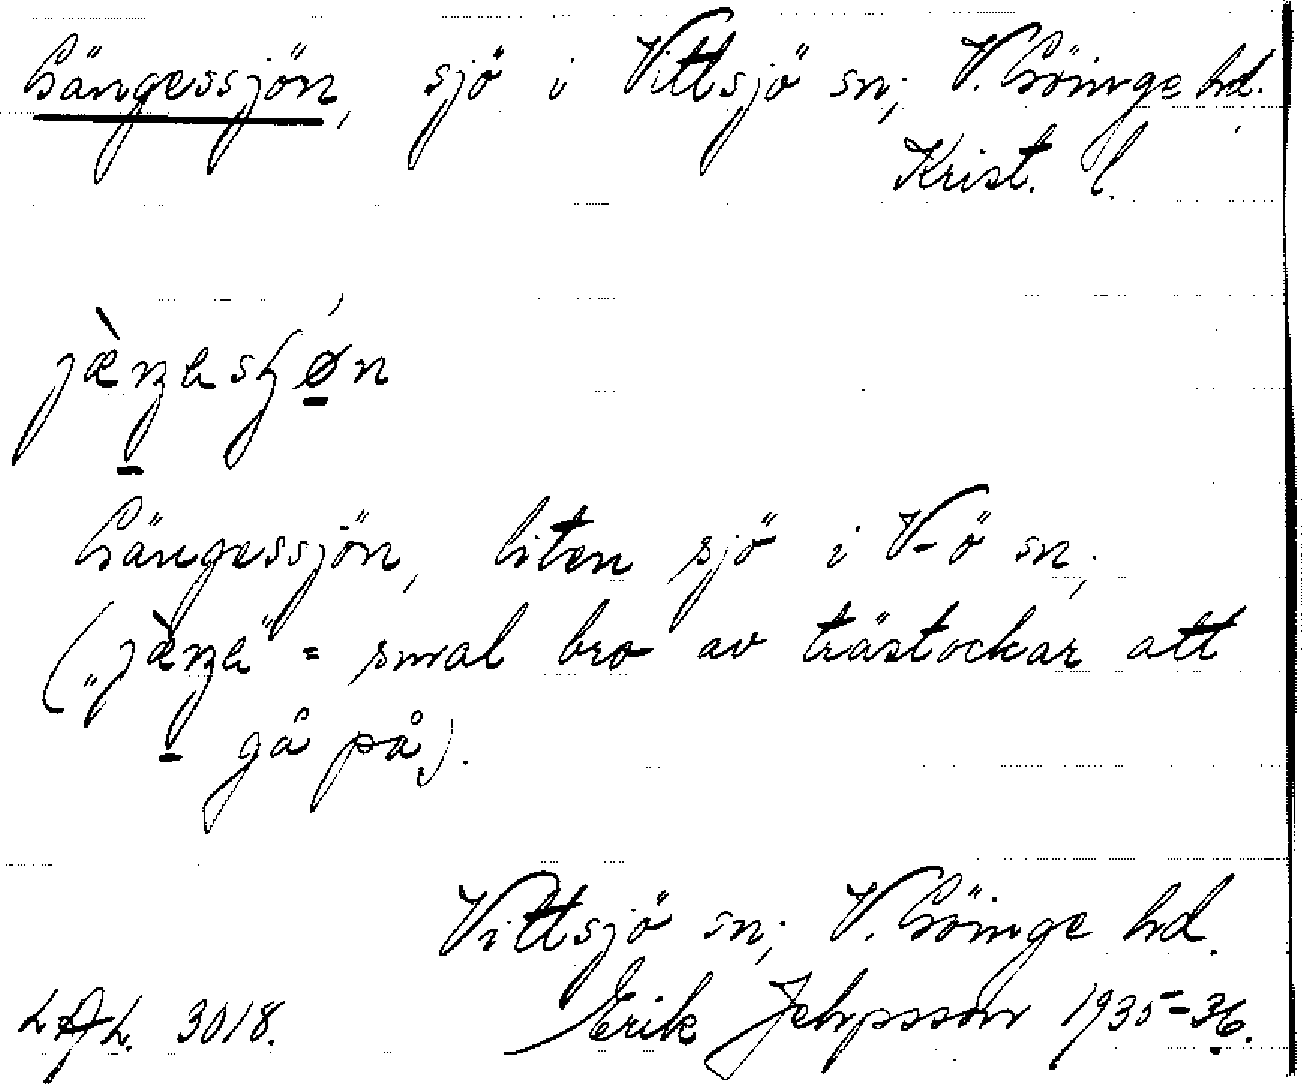 Gängessjön, sjö i Vittsjö sn; V. Göinge hd.
Krist. l.
jæ̀ŋasɧø̲n
Gängessjön, liten sjö i V-ö sn;
("jæ̀ŋa" = smal bro av trästockar att
gå på).
Vittsjö sn; V. Göinge hd.
LAL. 3018. Erik 1935-36.